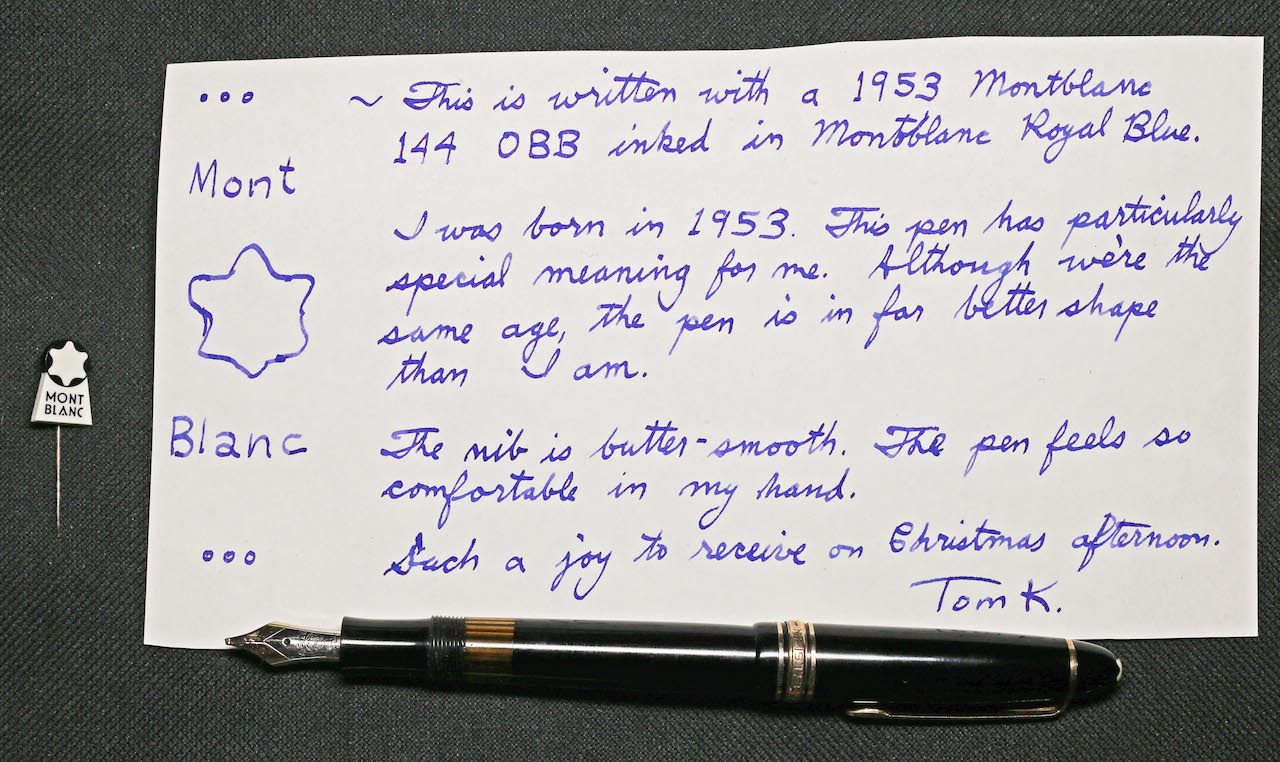 ...
Mont
Blanc
...
~ This is written with a 1953 Montblanc
144 OBB inked in Montblanc Royal Blue.
I was born in 1953. This pen has particularly
special meaning for me. Although we're the
same age, the pen is in far better shape
than I am.
The nib is butter-smooth. The pen feels so
comfortable in my hand.
Such a joy to receive on Christmas afternoon.
Tom K.
MONT
BLANC